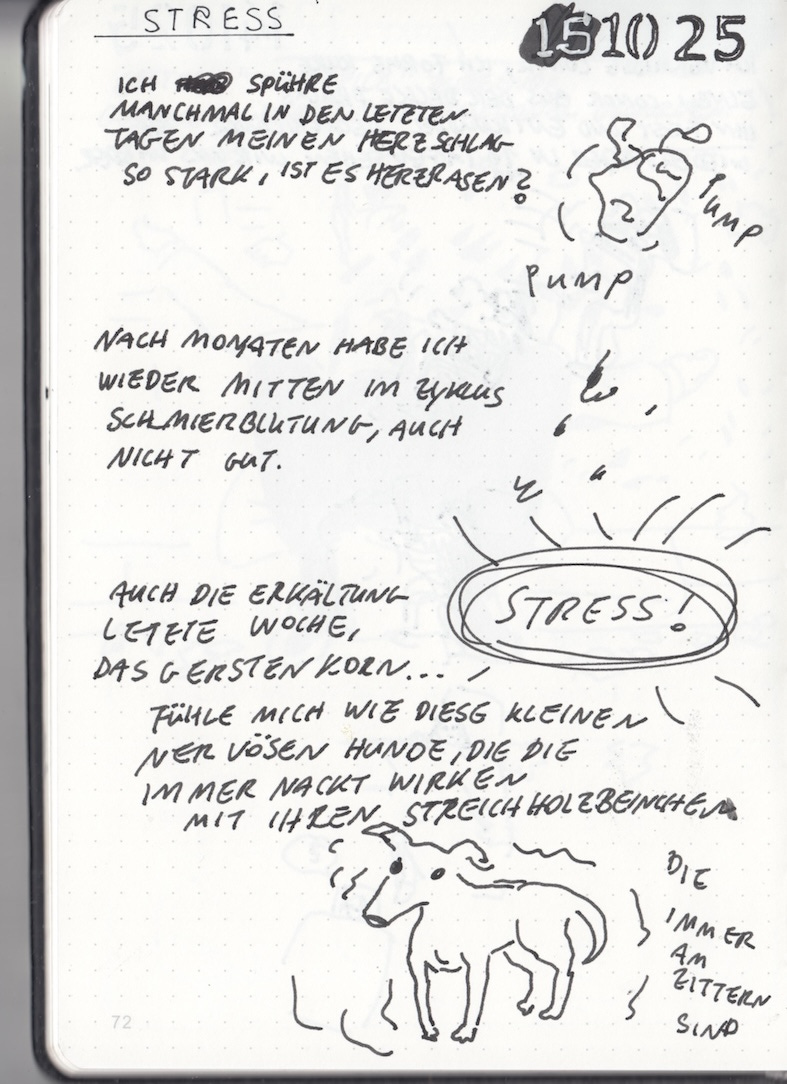 STRESS
151025
ICH SPÜHRE
MANCHMAL IN DEN LETZTEN
TAGEN MEINEN HERZSCHLAG
SO STARK, IST ES HERZRASEN?
PUMP
PUMP
NACH MONATEN HABE ICH
WIEDER MITTEN IM ZYKLUS
SCHMIERBLUTUNG, AUCH
NICHT GUT.
AUCH DIE ERKÄLTUNG
LETZTE WOCHE,
DAS GERSTENKORN...
STRESS!
FÜHLE MICH WIE DIESE KLEINEN
NERVÖSEN HUNDE, DIE DIE
IMMER NACKT WIRKEN
MIT IHREN STREICHHOLZBEINCHEN
DIE
IMMER
AM
ZITTERN
SIND
72